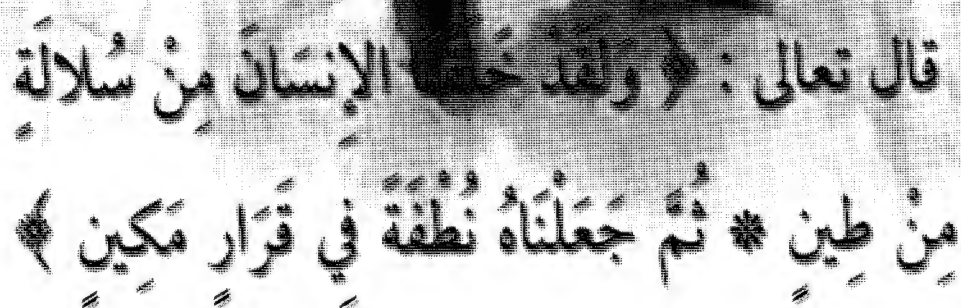 قال تعالى : ﴿ وَلَقَدْ خَلَقْنَا الإِنسَانَ مِنْ سُلالَةٍ
مِنْ طِينٍ * ثُمَّ جَعَلْنَاهُ نُطْفَةً فِي قَرَارٍ مَكِينٍ ﴾